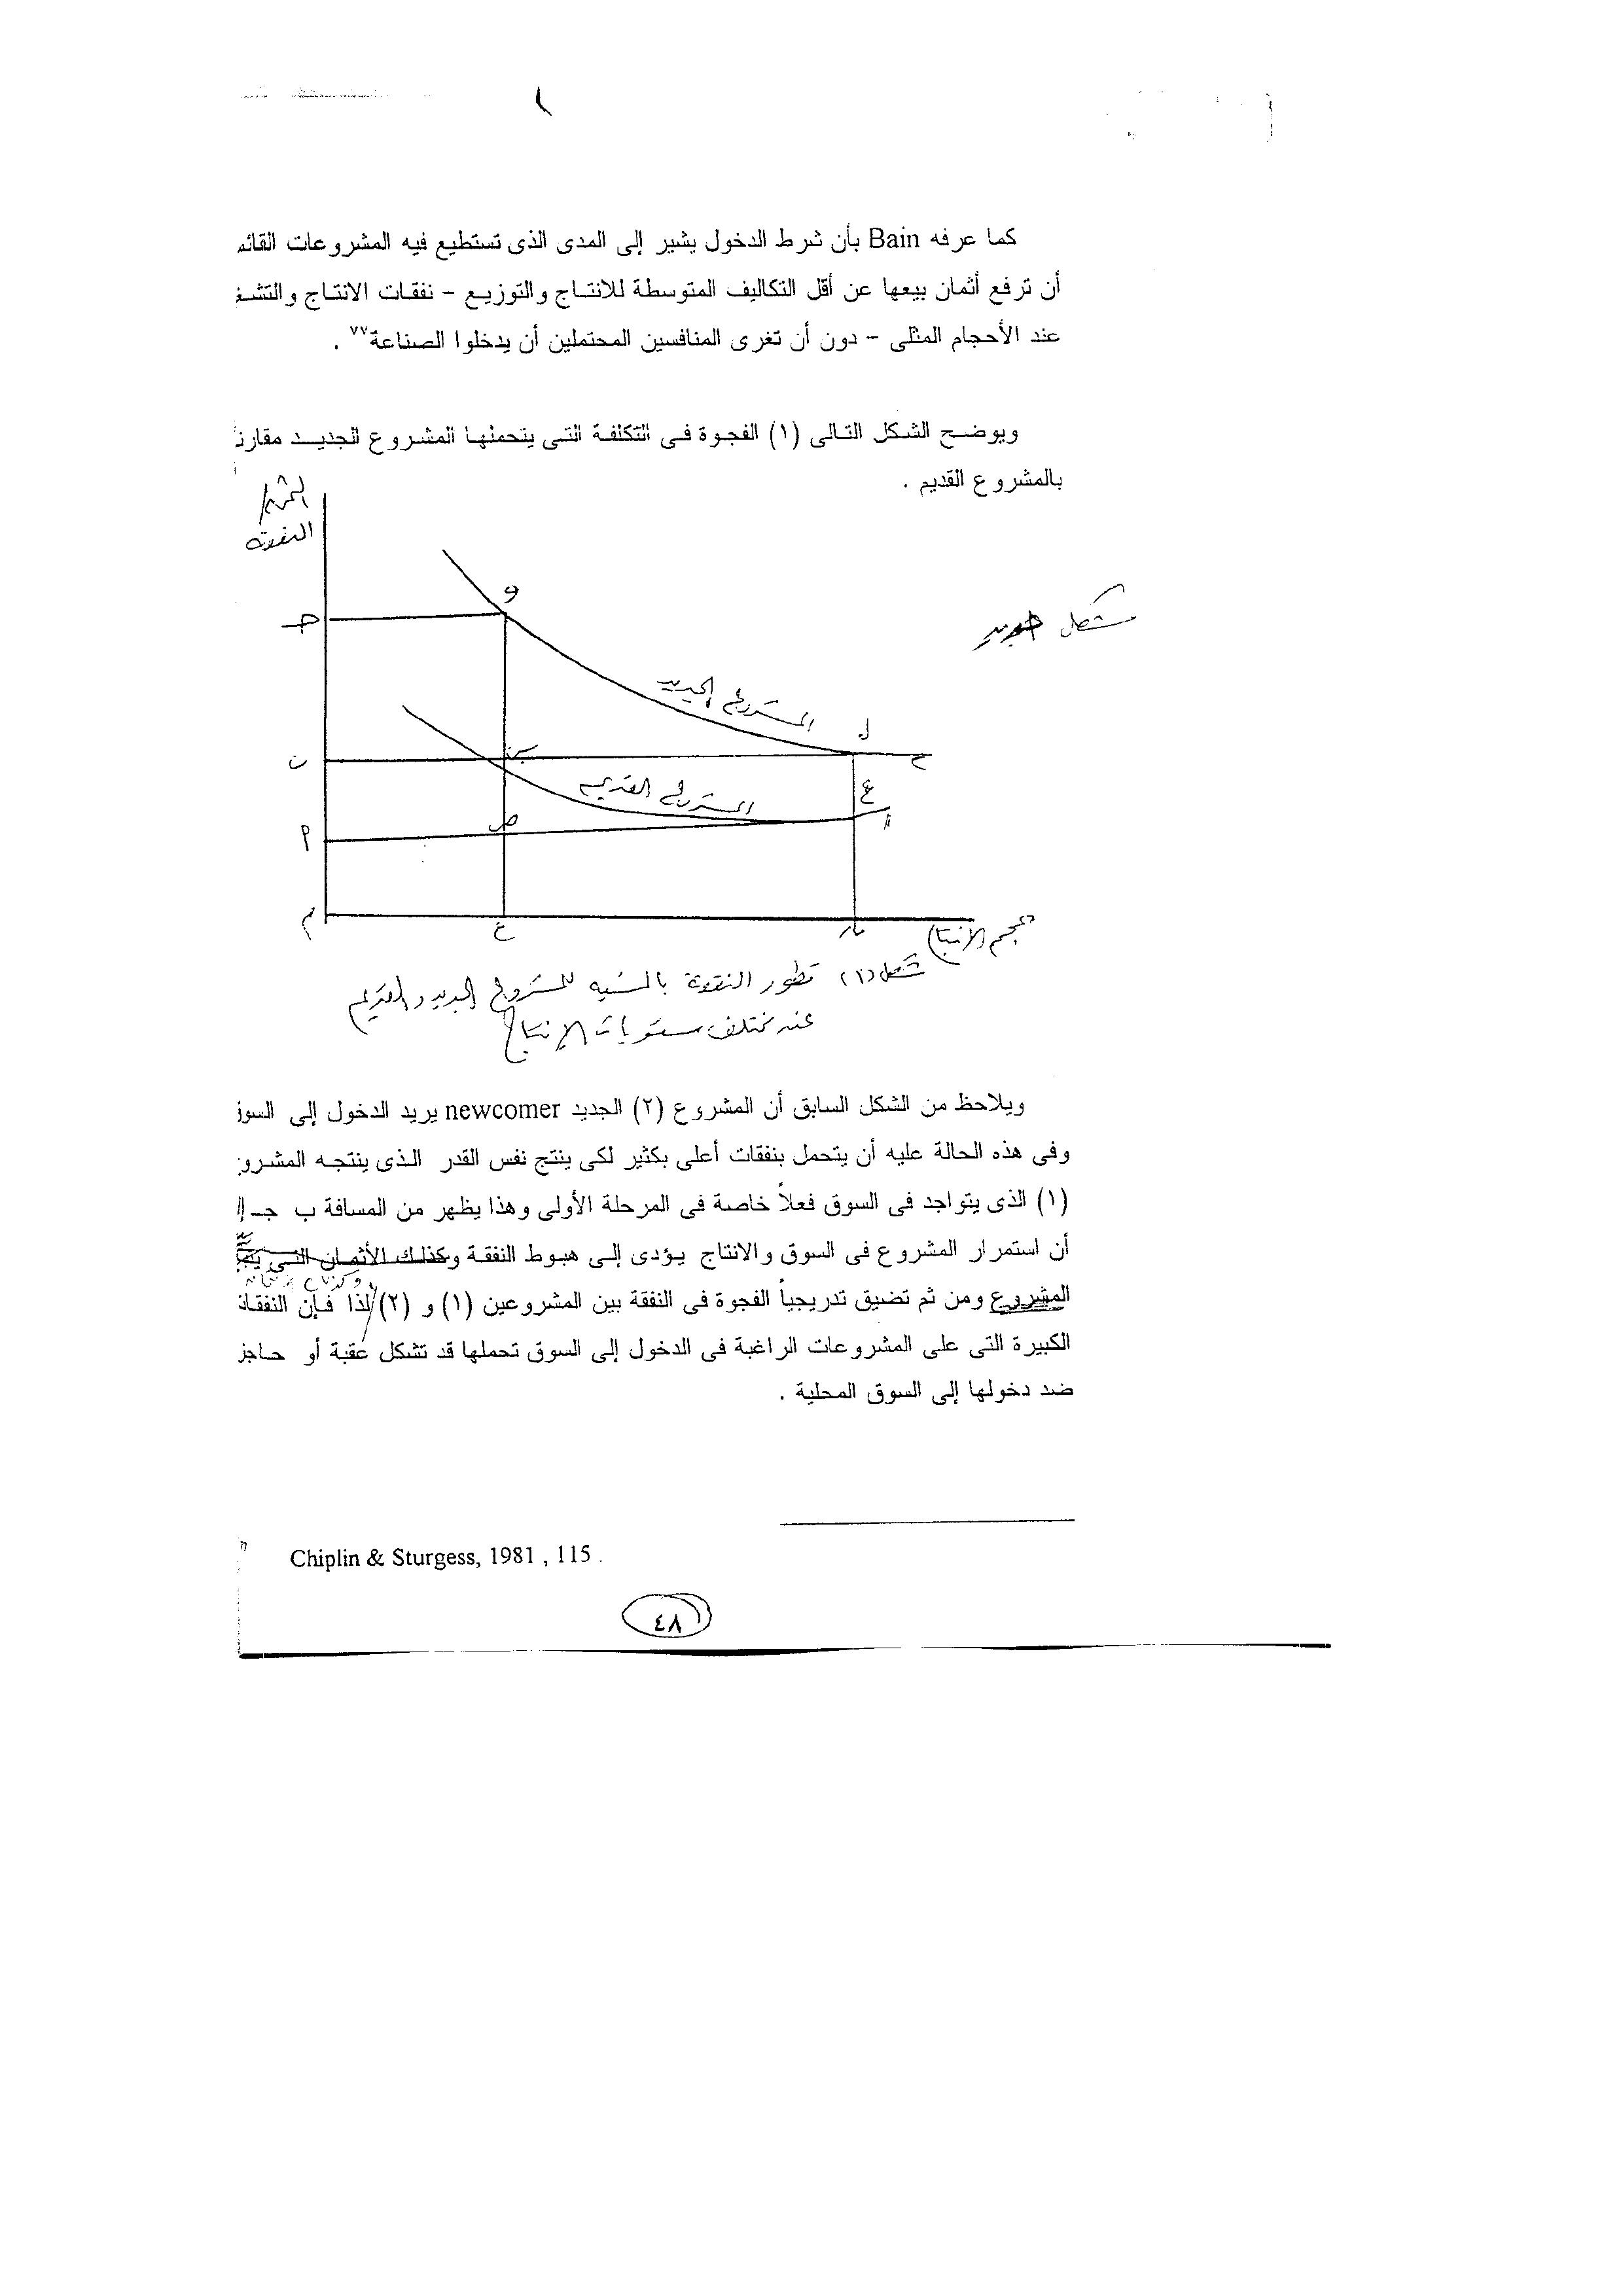 كما عرفه Bain بأن شرط الدخول يشير إلى المدى الذى تستطيع فيه المشروعات القائم
أن ترفع أثمان بيعها عن أقل التكاليف المتوسطة للانتاج والتوزيع - نفقات الانتاج والتشغ
عند الأحجام المثلى - دون أن تغرى المنافسين المحتملين أن يدخلوا الصناعة٧٧ .
ويوضح الشكل التالى (١) الفجوة فى التكلفة التى يتحملها المشروع الجديد مقارن
بالمشروع القديم .
النفقة
و
جـ
شكل جديد
المشروع الجديد
ل
ن
س
ح
المشروع القديم
ع
ص
م
ع
حجم الإنتاج
شكل (١) تطور النفقة بالنسبة للمشروع الجديد والقديم
عند مختلف مستويات الإنتاج
ويلاحظ من الشكل السابق أن المشروع (٢) الجديد newcomer يريد الدخول إلى السوق
وفى هذه الحالة عليه أن يتحمل بنفقات أعلى بكثير لكى ينتج نفس القدر الذى ينتجه المشرو
(١) الذى يتواجد فى السوق فعلاً خاصة فى المرحلة الأولى وهذا يظهر من المسافة ب جـ إ
أن استمرار المشروع فى السوق والانتاج يؤدى إلى هبوط النفقة وكذلك الأثمان التى
المشروع ومن ثم تضيق تدريجياً الفجوة فى النفقة بين المشروعين (١) و (٢) لذا فإن النفقات
الكبيرة التى على المشروعات الراغبة فى الدخول إلى السوق تحملها قد تشكل عقبة أو حاجز
ضد دخولها إلى السوق المحلية .
٧٧ Chiplin & Sturgess, 1981 , 115 .
٤٨